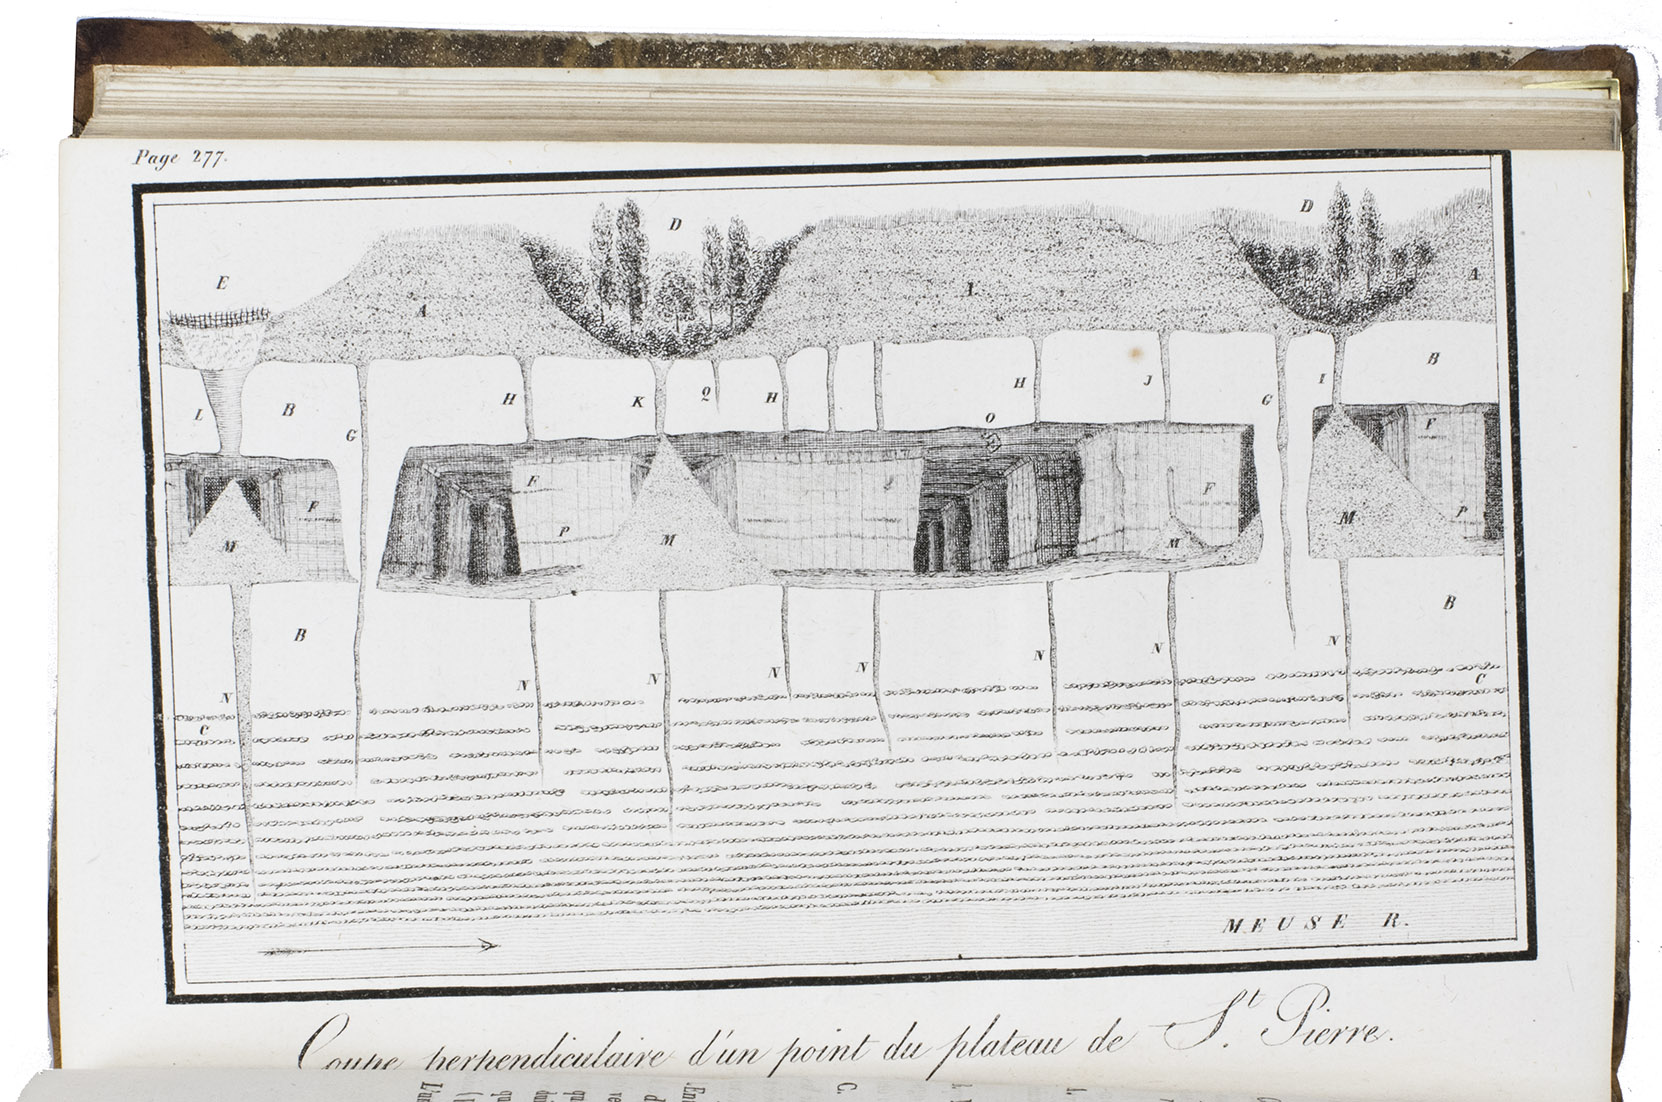 Page 277.
D
D
E
A
A
A
B
L
B
G
H
K
Q
H
O
H
J
G
I
F
F
F
F
M
P
M
M
M
P
B
B
N
N
N
N
N
N
N
N
C
C
MEUSE R.
Coupe perpendiculaire d'un point du plateau de St. Pierre.